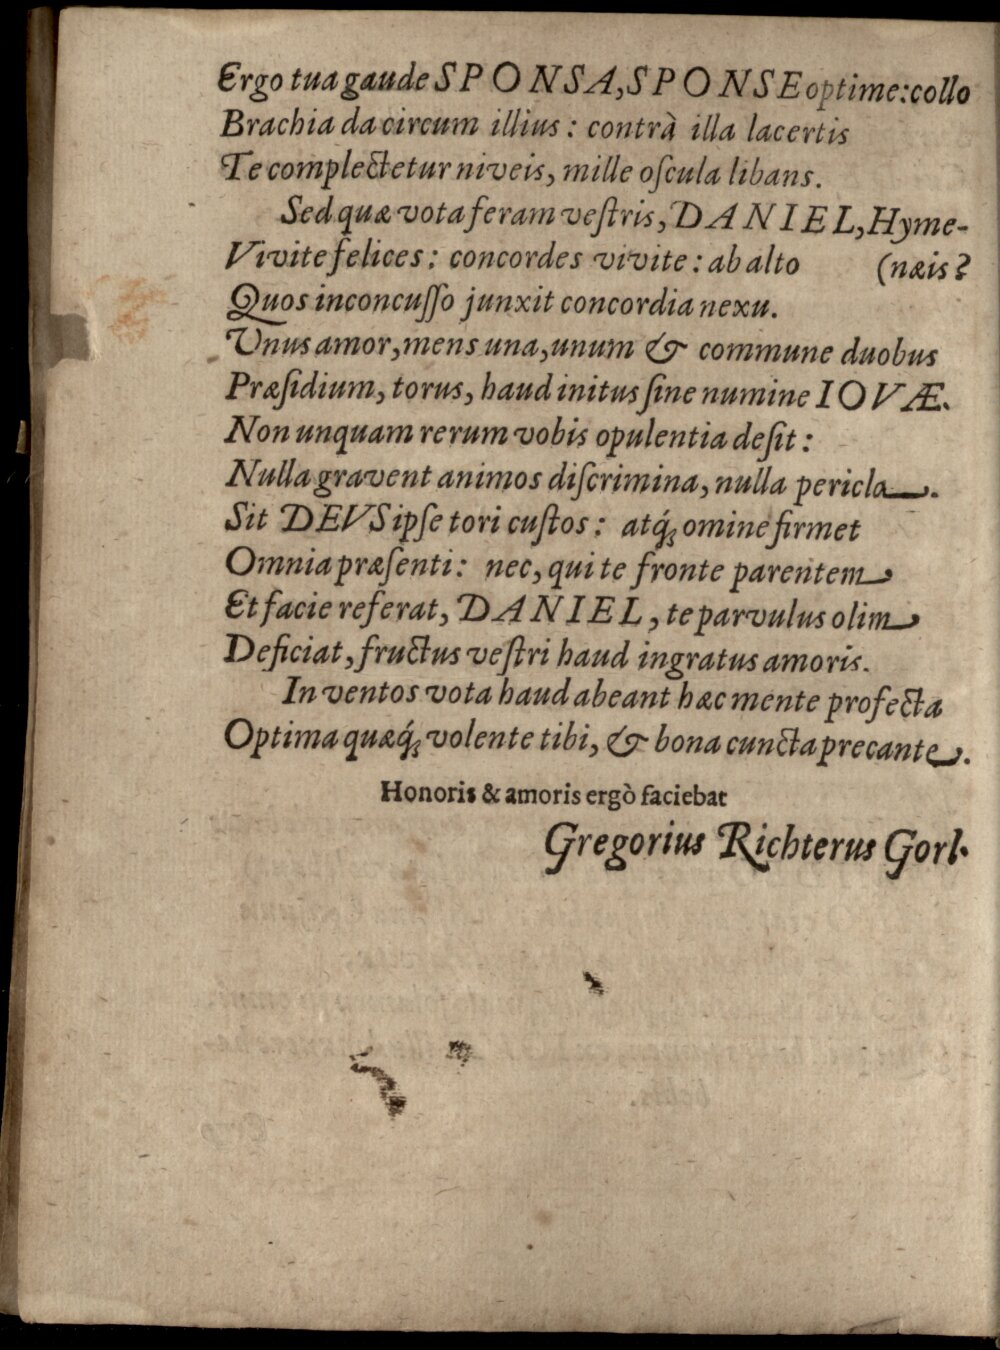 Ergo tua gaude SPONSA, SPONSE optime: collo
Brachia da circum illius: contrà illa lacertis
Te complectetur niveis, mille oſcula libans.
Sed quæ vota feram veſtris, DANIEL, Hyme-
Vivite felices: concordes vivite: ab alto (næis?
Quos inconcuſſo junxit concordia nexu.
Unus amor, mens una, unum & commune duobus
Præſidium, torus, haud initus ſine numine IOVÆ.
Non unquam rerum vobis opulentia deſit:
Nulla gravent animos diſcrimina, nulla pericla.
Sit DEVS ipſe tori cuſtos: atq́ꝫ omine firmet
Omnia præſenti: nec, qui te fronte parentem
Et facie referat, DANIEL, te parvulus olim
Deficiat, fructus veſtri haud ingratus amoris.
In ventos vota haud abeant hæc mente profecta
Optima quæq́ꝫ volente tibi, & bona cuncta precante.
Honoris & amoris ergò faciebat
Gregorius Richterus Gorl.